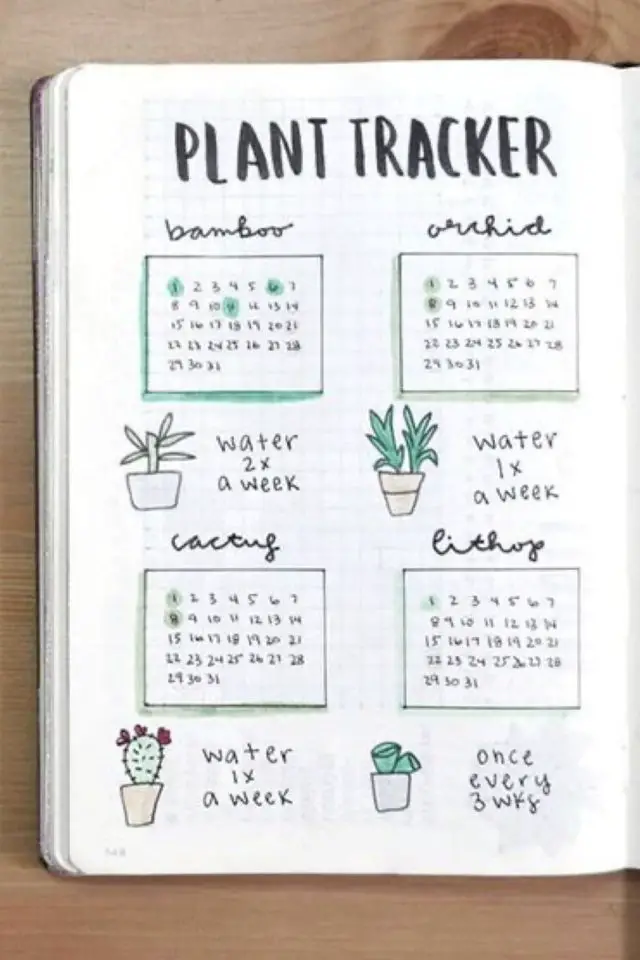 PLANT TRACKER
bamboo
1 2 3 4 5 6 7
8 9 10 11 12 13 14
15 16 17 18 19 20 21
22 23 24 25 26 27 28
29 30 31
water
2x
a week
orchid
1 2 3 4 5 6 7
8 9 10 11 12 13 14
15 16 17 18 19 20 21
22 23 24 25 26 27 28
29 30 31
water
1x
a week
cactus
1 2 3 4 5 6 7
8 9 10 11 12 13 14
15 16 17 18 19 20 21
22 23 24 25 26 27 28
29 30 31
water
1x
a week
lithop
1 2 3 4 5 6 7
8 9 10 11 12 13 14
15 16 17 18 19 20 21
22 23 24 25 26 27 28
29 30 31
once
every
3 wks